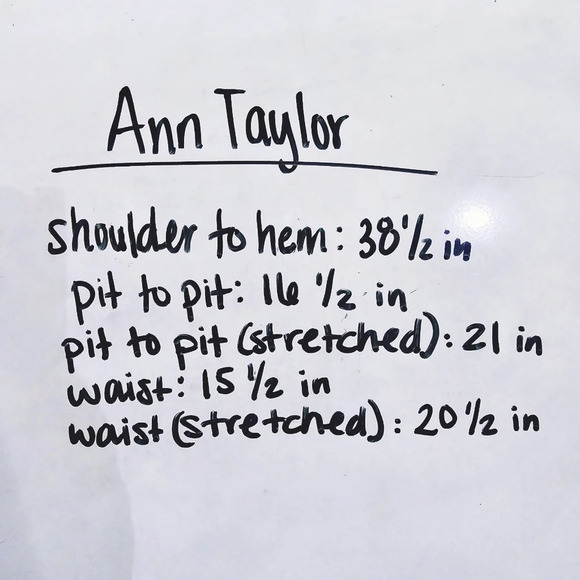 Ann Taylor
shoulder to hem: 38 1/2 in
pit to pit: 16 1/2 in
pit to pit (stretched): 21 in
waist: 15 1/2 in
waist (stretched): 20 1/2 in